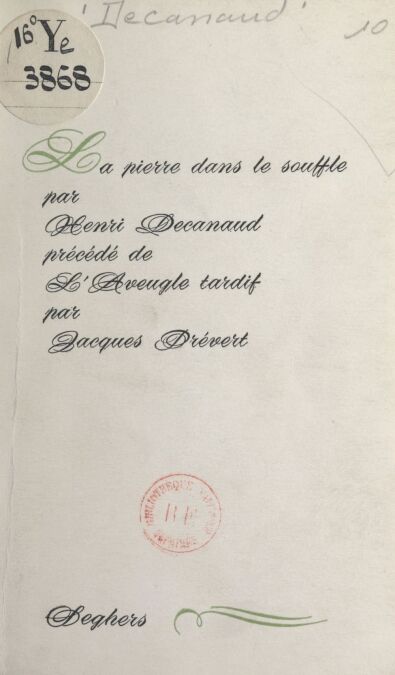 'Decanaud'
10
16° Ye
3868
La pierre dans le souffle
par
Henri Decanaud
précédé de
L'Aveugle tardif
par
Jacques Prévert
BIBLIOTHEQUE
Seghers